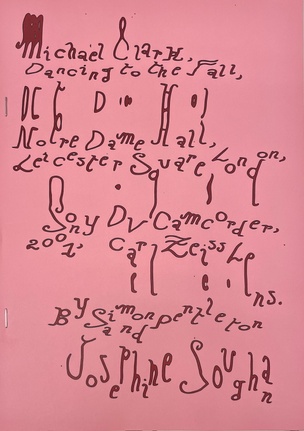 Michael Clark,
Dancing to the Fall,
Notre Dame Hall,
Leicester Square, London,
Sony DV Camcorder,
2001, Carl Zeiss Lens.
By Simon pentleton
and
Josephine Soughan